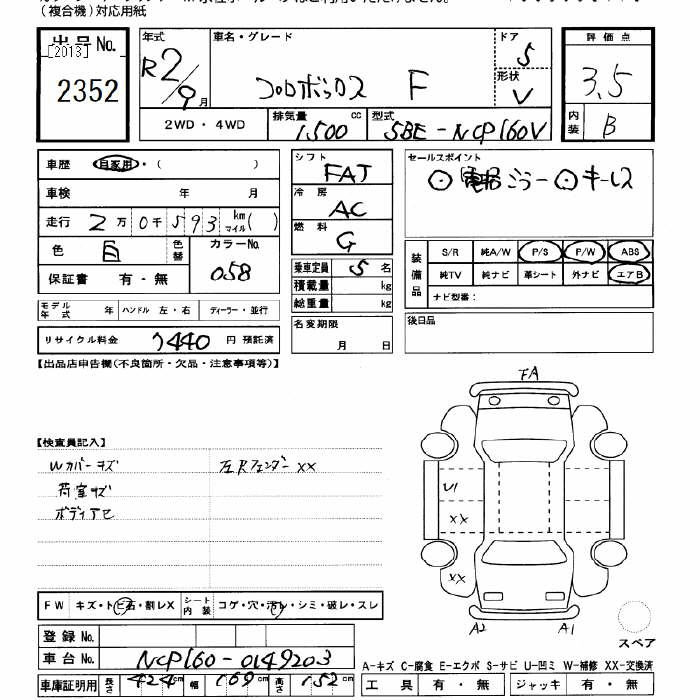 (複合機)対応用紙
出品No.
[2013]
2352
年式
R2/9月
車名・グレード
プロボックス F
ドア
5
形状
V
評価点
3.5
2WD・4WD
排気量
1,500 cc
型式
5BE-NCP160V
内装
B
車歴
自家用・( )
車検 年 月
走行 2万0千593 km マイル( )
色 白 色替
カラーNo.
058
保証書 有・無
モデル年式 年
ハンドル 左・右
ディーラー・並行
リサイクル料金 7440 円 預託済
シフト
FAT
冷房
AC
燃料
G
乗車定員 5 名
積載量 kg
総重量 kg
名変期限
月 日
セールスポイント
キーレス
装備品
S/R 純A/W P/S P/W ABS
純TV 純ナビ 革シート 外ナビ エアB
ナビ型番:
後日品
【出品店申告欄(不良箇所・欠品・注意事項等)】
【検査員記入】
Wカバーキズ
左Rフェンダー XX
荷室キズ
ボディアセ
FW キズ・トビ石・割レX
シート内装 コゲ・穴・汚レ・シミ・破レ・スレ
登録No.
車台No. NCP160-0149203
車庫証明用 長さ 424cm 幅 169cm 高さ 152cm
FA
U1
XX
XX
A2
A1
スペア
A-キズ C-腐食 E-エクボ S-サビ U-凹ミ W-補修 XX-交換済
工具 有・無 ジャッキ 有・無